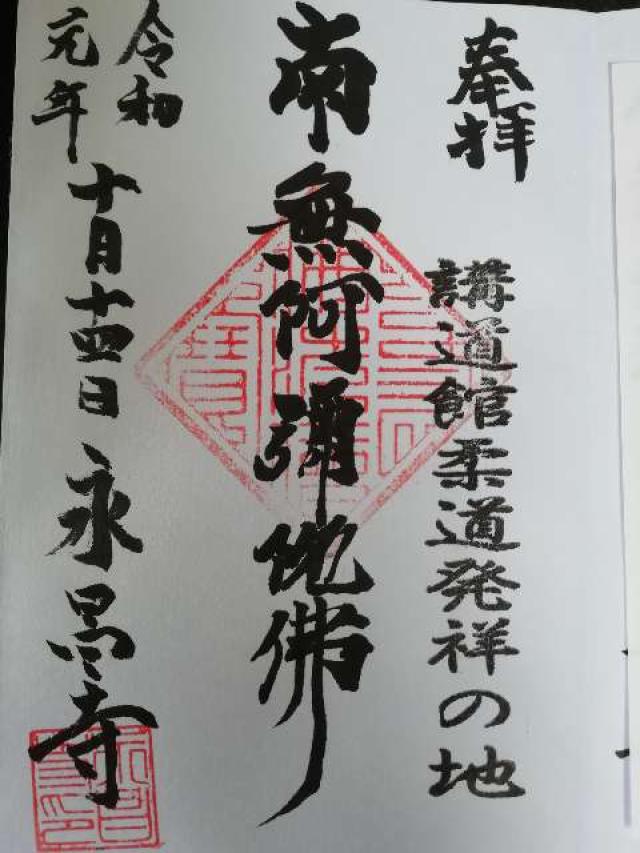 奉拝
講道館柔道発祥の地
南無阿彌陀佛
令和
元年
十月十四日
永昌寺